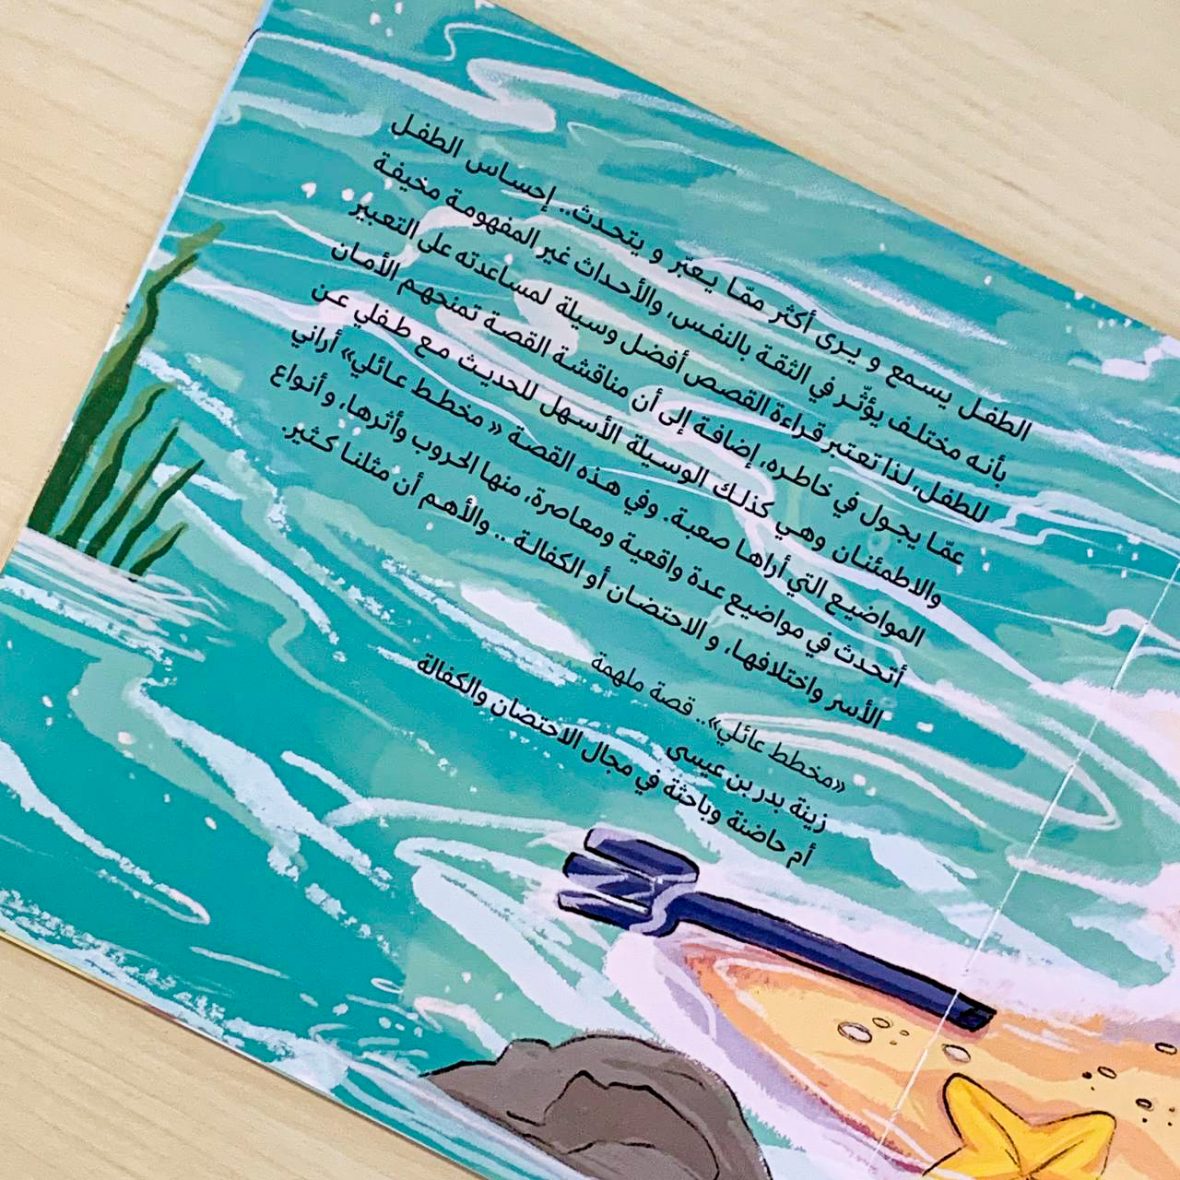 الطفل يسمع و يرى أكثر ممّا يعبّر و يتحدث.. إحساس الطفل
بأنه مختلف يؤثّر في الثقة بالنفس، والأحداث غير المفهومة مخيفة
للطفل، لذا تعتبر قراءة القصص أفضل وسيلة لمساعدته على التعبير
عمّا يجول في خاطره، إضافة إلى أن مناقشة القصة تمنحهم الأمان
والاطمئنان وهي كذلك الوسيلة الأسهل للحديث مع طفلي عن
المواضيع التي أراها صعبة. وفي هذه القصة « مخطط عائلي» أراني
أتحدث في مواضيع عدة واقعية ومعاصرة، منها الحروب وأثرها، و أنواع
الأسر واختلافها، و الاحتضان أو الكفالة .. والأهم أن مثلنا كثير.
«مخطط عائلي».. قصة ملهمة
زينة بدر بن عيسى
أم حاضنة وباحثة في مجال الاحتضان والكفالة